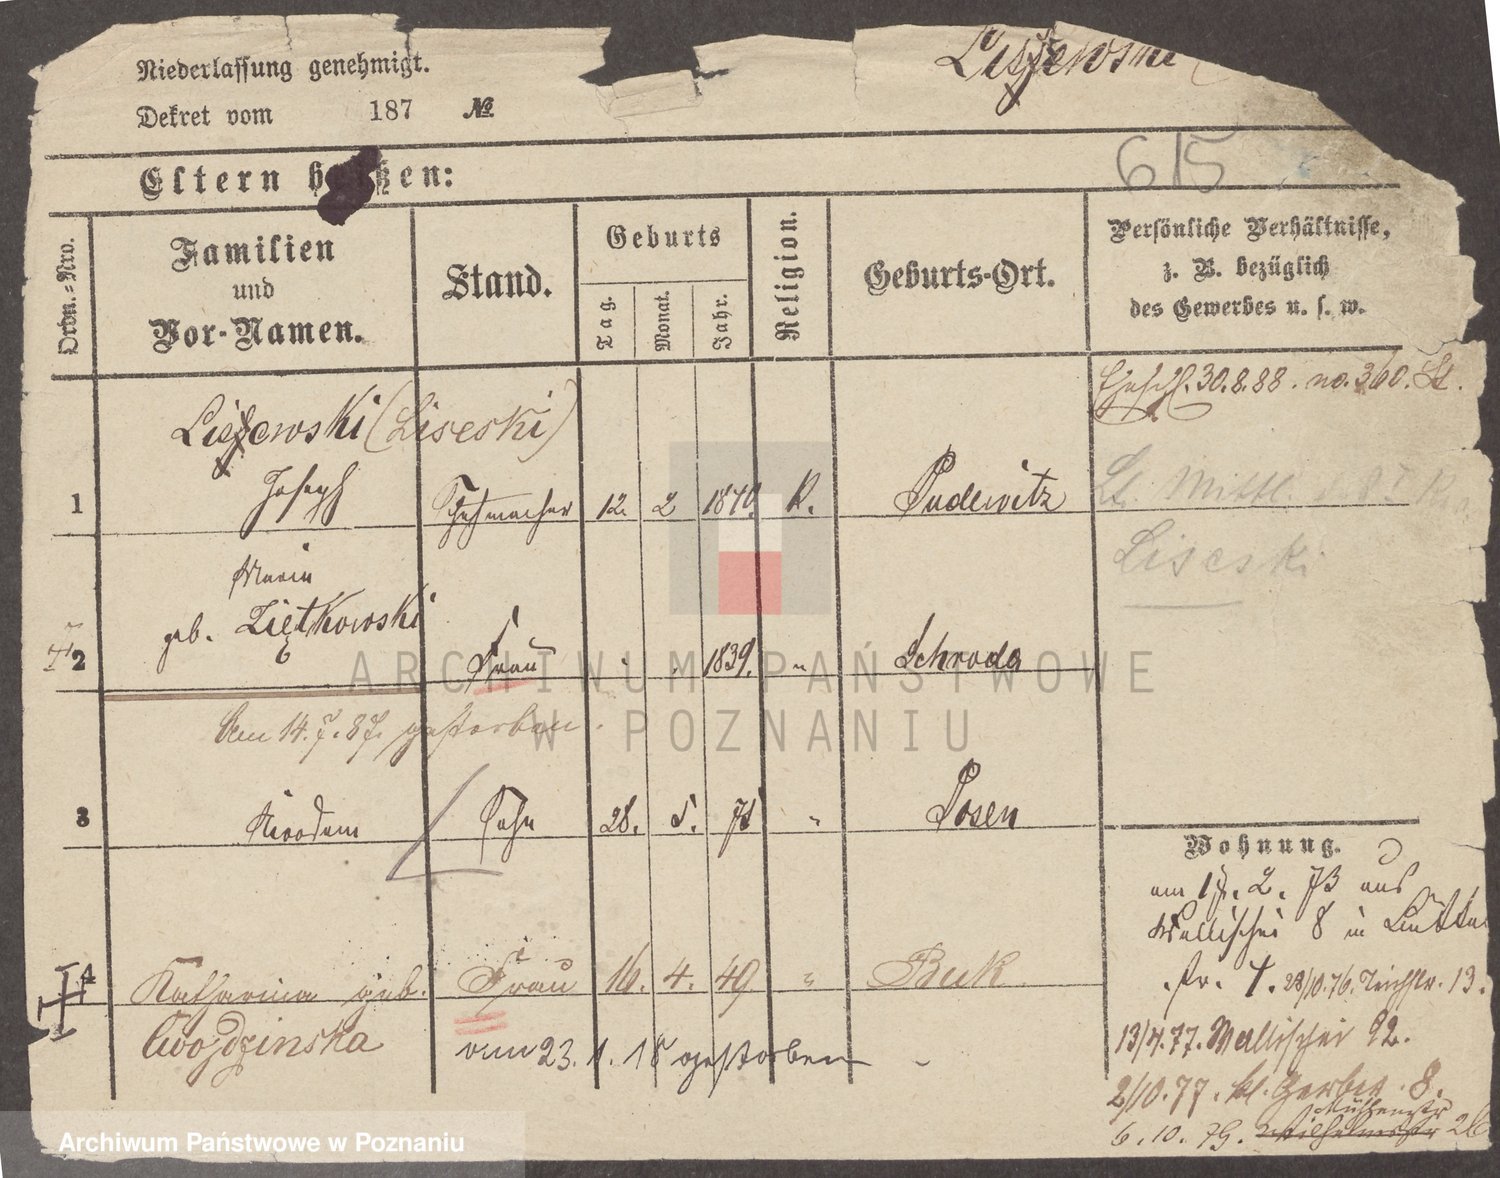 Niederlassung genehmigt.
Dekret vom 187 №
Liszewski
615
Eltern heißen:
Ordn.-Nro.
Familien
und
Vor-Namen.
Stand.
Geburts
Tag.
Monat.
Jahr.
Religion.
Geburts-Ort.
Persönliche Verhältnisse,
z. B. bezüglich
des Gewerbes u. s. w.
Ehschl. 30.8.88. no. 360. St.
Liszewski (Liseski)
1 Joseph 12. 2 1840. K. Pudewitz
Liseski
Maria
geb. Ziętkowski
2 Frau 1839. " Schroda
Am 14.7.87. gestorben.
3 Nicodem Sohn 28. 5. 75 " Posen
Wohnung.
am 17. 2. 73 aus
Wallischei 8 in
str. 7. 28/10.76. Teichstr. 13.
4 Katharina geb. Frau 16. 4. 49 " Buk
Cwojdzinska
am 23. 1. 18 gestorben
13/4.77. Wallischei 92.
2/10.77. kl. Gerber. 8.
Mühlenstr
6. 10. 79. Wilhelmstr 26
ARCHIWUM PAŃSTWOWE
W POZNANIU
Archiwum Państwowe w Poznaniu